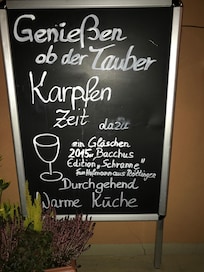 Genießen
ob der Tauber
Karpfen
Zeit
dazu
ein Gläschen
2015er Bacchus
Edition „Schranne"
von Hofmann aus Röttingen
Durchgehend
Warme Küche